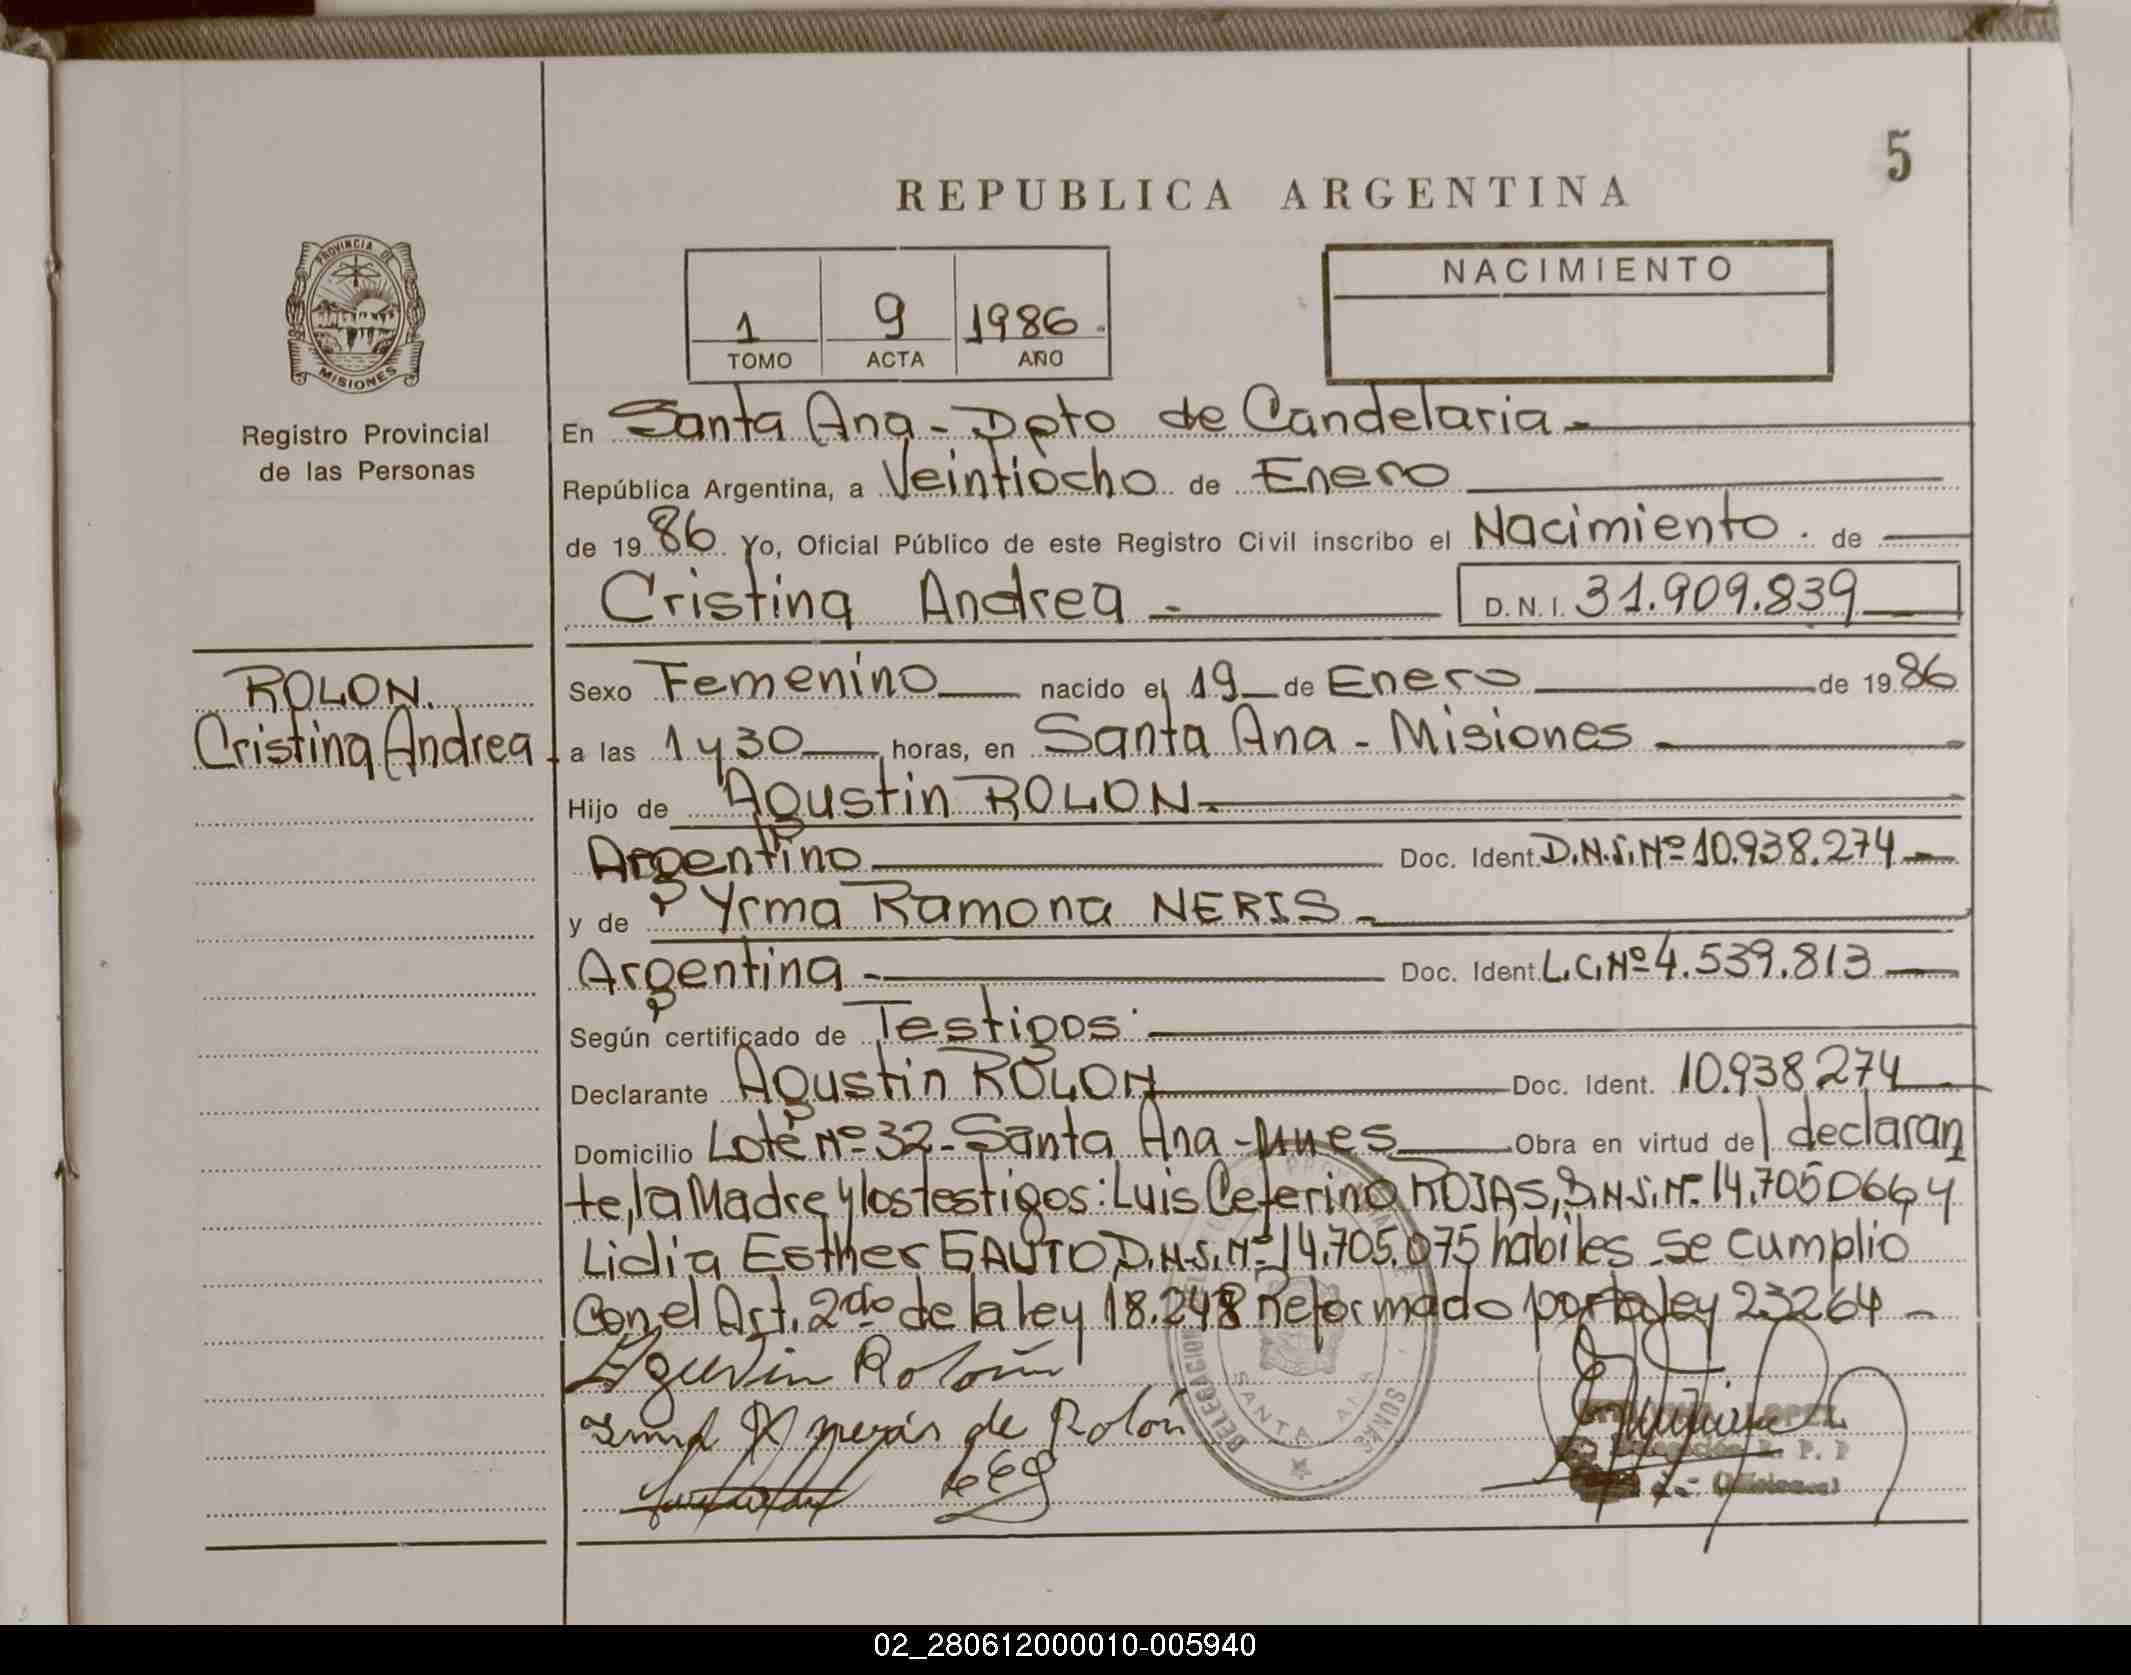 5
REPUBLICA ARGENTINA
PROVINCIA DE
MISIONES
Registro Provincial
de las Personas
1 9 1986.
TOMO ACTA AÑO
NACIMIENTO
En Santa Ana - Dpto de Candelaria -
República Argentina, a Veintiocho de Enero
de 1986 Yo, Oficial Público de este Registro Civil inscribo el Nacimiento. de
Cristina Andrea - D.N.I. 31.909.839
ROLON.
Cristina Andrea
Sexo Femenino nacido el 19 de Enero de 1986
a las 1 y 30 horas, en Santa Ana - Misiones -
Hijo de Agustin ROLON -
Argentino Doc. Ident. D.N.I. Nº 10.938.274
y de Yrma Ramona NERIS -
Argentina - Doc. Ident. L.C. Nº 4.539.813
Según certificado de Testigos:
Declarante Agustin ROLON Doc. Ident. 10.938274
Domicilio Lote Nº 32 - Santa Ana - Mnes Obra en virtud de l declaran
te, la Madre y los testigos: Luis Ceferino ROJAS, D.N.I. Nº 14.705066 y
Lidia Esther GAUTO D.N.I. Nº 14.705.075 habiles se cumplio
con el Art. 2do de la ley 18.248 Reformado por la ley 23264 -
Agustin Rolón
de Rolón
DELEGACION
SANTA ANA
LOPEZ
(Misiones)
02_280612000010-005940